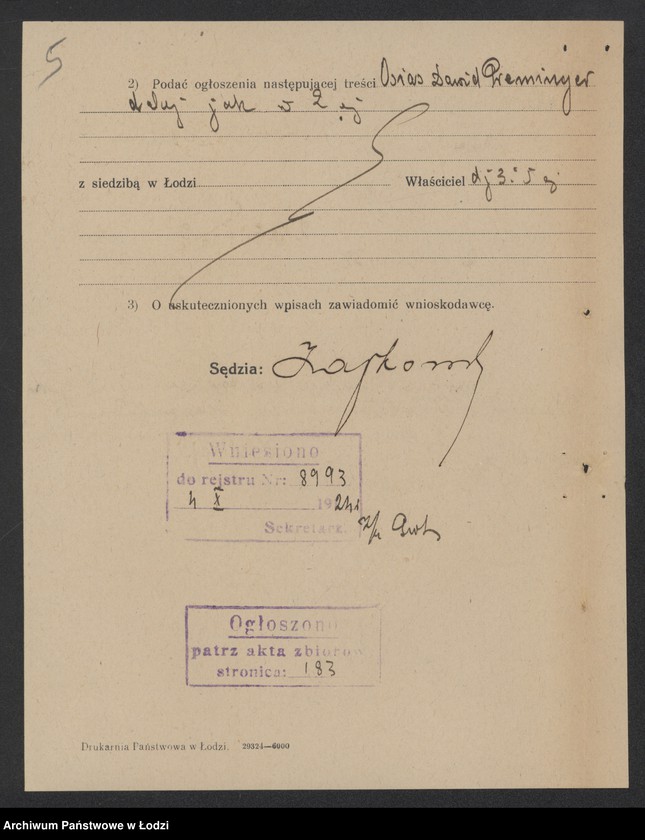 5
2) Podać ogłoszenia następującej treści Osias Dawid Preminger
dalej jak w 2 ej
z siedzibą w Łodzi Właściciel 3 i 5 ej
3) O uskutecznionych wpisach zawiadomić wnioskodawcę.
Sędzia:
Wniesiono
do rejstru Nr: 8993
4 X 1924 r
Sekretarz:
Ogłoszono
patrz akta zbiorow
stronica: 183
Drukarnia Państwowa w Łodzi. 29324—6000
Archiwum Państwowe w Łodzi